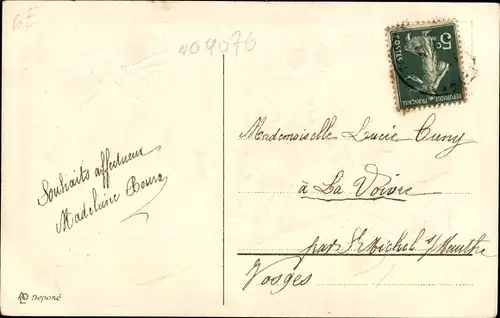 6E
NO9076
5c
POSTES
REPUBLIQUE FRANÇAISE
Souhaits affectueux
Madeleine
Mademoiselle Lucie Cuny
à La Voivre
par St Michel s/ Meurthe
Vosges
Deposé